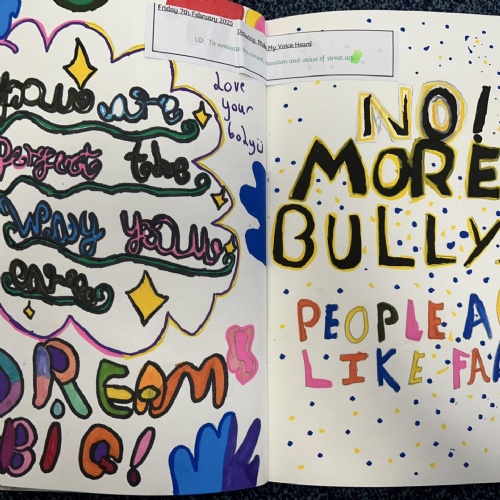 Friday 7th February 2025
My Voice Heard
LO: To evaluate the and value of street art.
you are
perfect the
way you
are
Love
your
body
DREAM
BIG!
NO!
MORE
BULLY
PEOPLE A
LIKE FA